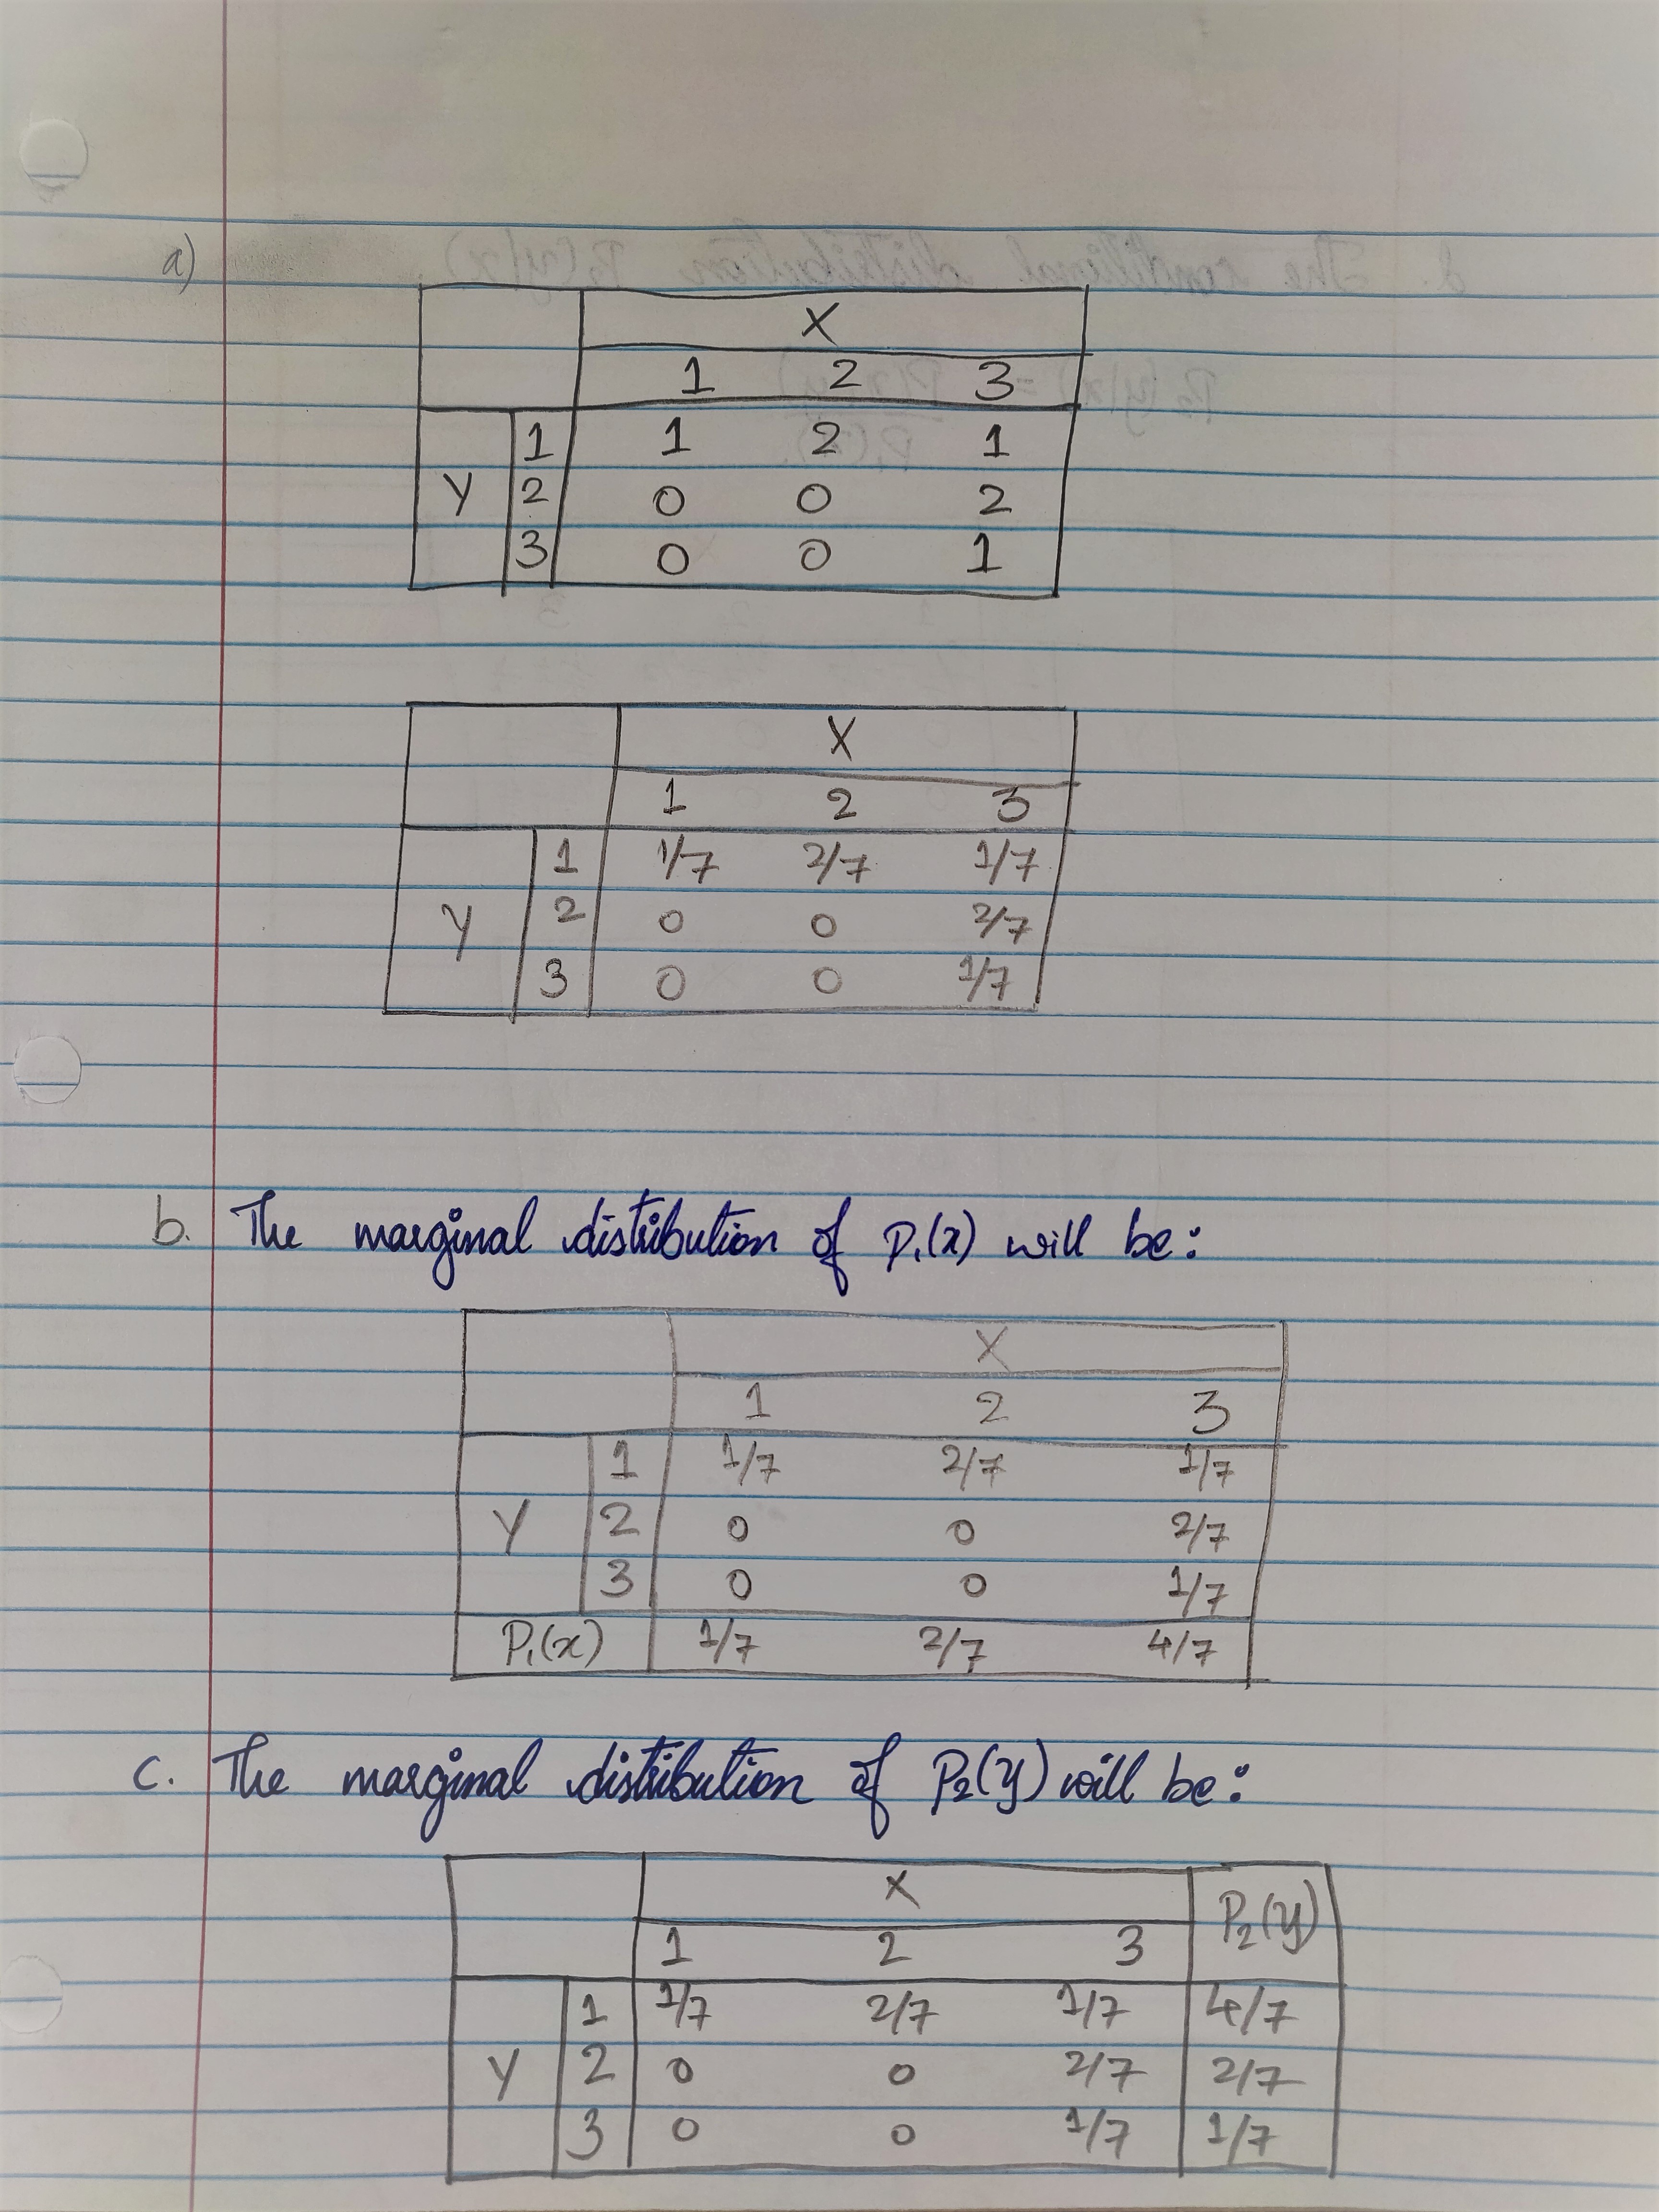 a)
X
1 2 3
1 1 2 1
Y 2 0 0 2
3 0 0 1
X
1 2 3
1 1/7 2/7 1/7
Y 2 0 0 2/7
3 0 0 1/7
b. The marginal distribution of P₁(x) will be:
X
1 2 3
1 1/7 2/7 1/7
Y 2 0 0 2/7
3 0 0 1/7
P₁(x) 1/7 2/7 4/7
c. The marginal distribution of P₂(y) will be:
X P₂(y)
1 2 3
1 1/7 2/7 1/7 4/7
Y 2 0 0 2/7 2/7
3 0 0 1/7 1/7